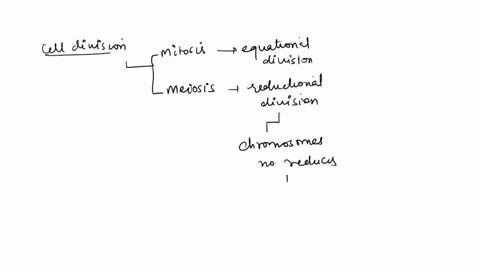 cell division
mitosis → equational
division
meiosis → reductional
division
chromosomes
no reduces